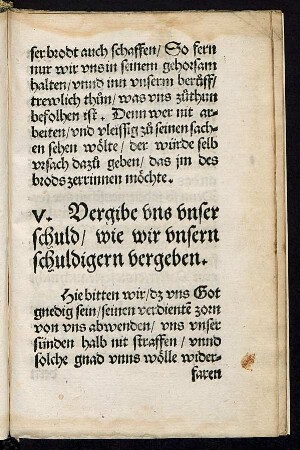 ser brodt auch schaffen/ So fern
nur wir vns in seinem gehorsam
halten/ vnnd inn vnserm berůff/
trewlich thůn/ was vns zůthun
befolhen ist. Denn wer nit ar-
beiten/ vnd vleissig zů seinen sach-
en sehen wölte/ der würde selb
vrsach dazů geben/ das jm des
brods zerrinnen möchte.
V. Vergibe vns vnser
schuld/ wie wir vnsern
schuldigern vergeben.
Hie bitten wir/ dz vns Got
gnedig sein/ seinen verdientẽ zorn
von vns abwenden/ vns vnser
sünden halb nit straffen/ vnnd
solche gnad vnns wölle wider-
faren